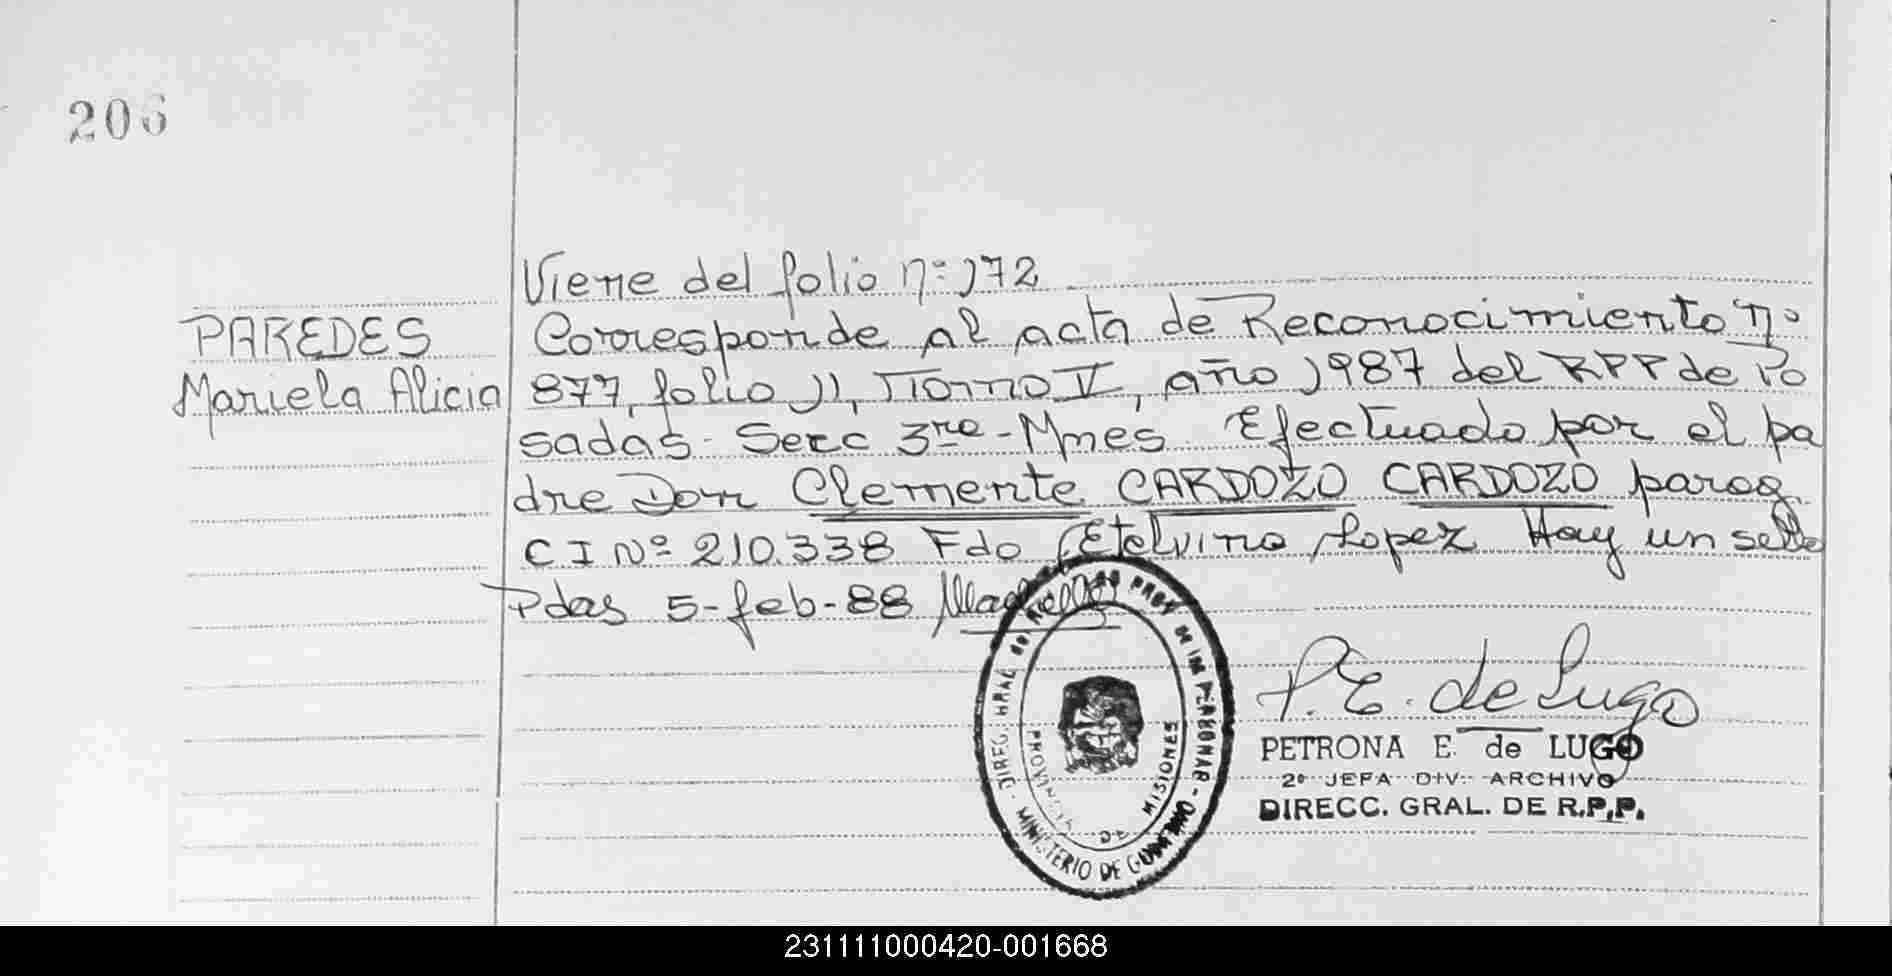 206
Viene del folio nº 172
PAREDES
Mariela Alicia
Corresponde al acta de Reconocimiento nº
877, folio 11, Tomo V, año 1987 del RPP de Po
sadas. Secc 3ra - Mnes. Efectuado por el pa
dre Don Clemente CARDOZO CARDOZO parag.
C I Nº 210.338 Fdo Etelvina Lopez Hay un sello
Pdas 5-feb-88
P.E. de Lugo
PETRONA E. de LUGO
2º JEFA DIV. ARCHIVO
DIRECC. GRAL. DE R.P.P.
MINISTERIO DE
PROVINCIA DE MISIONES
231111000420-001668